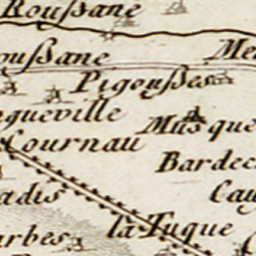 Roussane
oussane
Me
Pigousses
gueville
Musque
Cournau
Bardec
Cay
adis
la Tuque
arbes